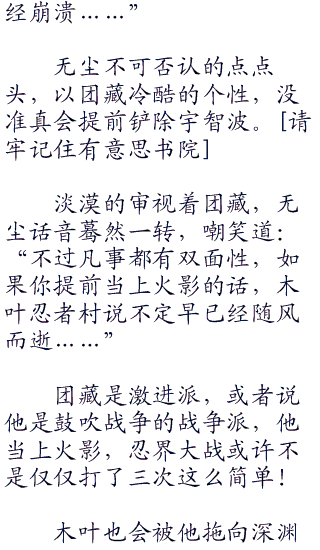 经崩溃……”
无尘不可否认的点点
头，以团藏冷酷的个性，没
准真会提前铲除宇智波。[请
牢记住有意思书院]
淡漠的审视着团藏，无
尘话音蓦然一转，嘲笑道：
“不过凡事都有双面性，如
果你提前当上火影的话，木
叶忍者村说不定早已经随风
而逝……”
团藏是激进派，或者说
他是鼓吹战争的战争派，他
当上火影，忍界大战或许不
是仅仅打了三次这么简单！
木叶也会被他拖向深渊